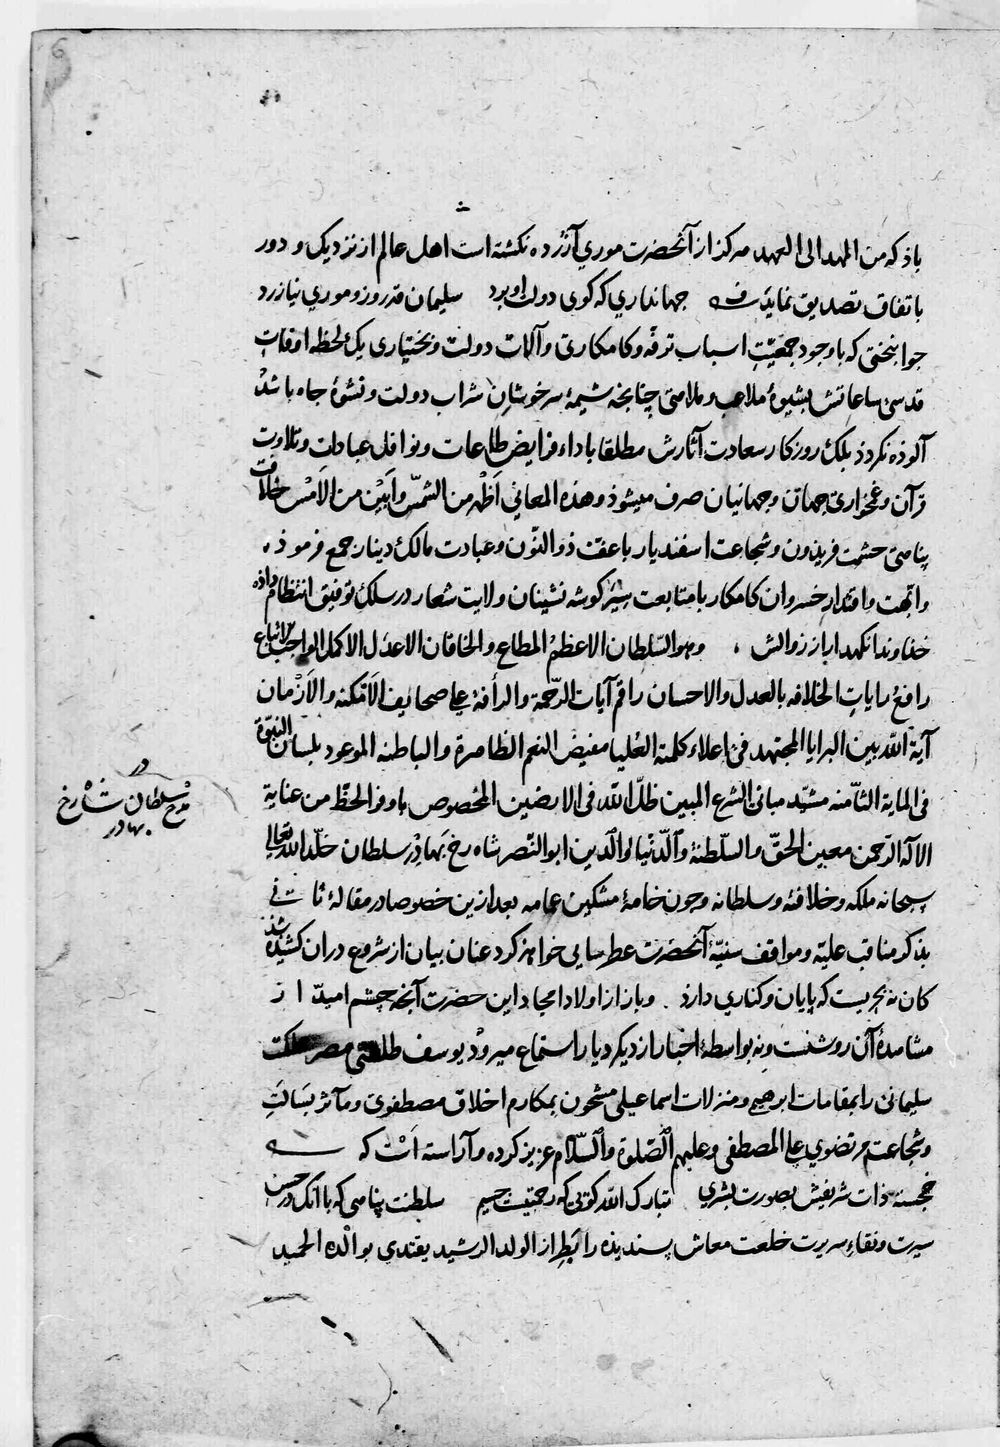 باذ که من المهد الی العهد هرکز از آنحضرت موری آزرده نکشته است اهل عالم از نزدیک و دور
باتفاق تصدیق نمایند جهانداری که کوی دولت او برد سلیمان قدر روز و موری نیازرد
جوانبختی که باوجود جمعیّت اسباب ترفّه و کامکاری و آلات دولت و بختیاری یک لحظه اوقات
قدسی ساعاتش بشیوۀ ملاعب و ملاهی چنانجه شیمۀ سرخوشان شراب دولت و نشوۀ جاه باشد
آلوذه نکردذ بلک روزکار سعادت آثارش مطلقا باداء فرایض طاعات و نوافل عبادات و تلاوت
قرآن و غمخواری جهان و جهانیان صرف میشوذ و هذه المعانی اَظهر من الشمس وَاَبیَن من الاَمس خلافت
پناهی حشمت فریذون و شجاعت اسفندیار با عفت ذوالنون و عبادت مالک دینار جمع فرموذه
و ابّهت و اقتدار خسروان کامکار با متابعت سیَر کوشه نشینان ولایت شعار در سلک توفیق انتظام داده
خداوندا نکهدار از زوالش ، وهو السّلطان الاعظم المطاع والخاقان الاعدل الاکمل الواجب الاتباع
رافع رایات الخلافه بالعدل والاحسان راقم آیات الرّحمة والرأفة علی صحایف الاَمکنه والاَزمان
آیة الله بین البرایا المجتهد فی اعلاء کلمته العُلیا مفیض النعم الظاهرة والباطنه الموعود بلسان النبوّة
فی المایة الثامنه مشیّد مبانی الشرع المبین ظلّ الله فی الارضین المخصوص باوفر الحظّ من عنایة
الاله الرّحمن معین الحقّ والسّلطنة والدّنیا والدین ابو النّصر شاه رخ بهاذر سلطان خلّد الله تعالی
سبحانه ملکه وخلافته وسلطانه وچون خامۀ مشکین عمامه بعد ازین خصوصا در مقالۀ
بذکر مناقب علیّه و مواقف سنیّۀ آنحضرت عطرسایی خواهد کرد عنان بیان از شروع در آن کشیده شد
کان نه بحریست که پایان و کناری دارد. و باز از اولاد امجاد این حضرت آنجه چشم امید از
مشاهدۀ آن روشنست و نه بواسطۀ اخبار از دیکر دیار استماع میروذ یوسف طلعتی مصر مملکت
سلیمانی را بمقامات ابرهیم و منزلات اسماعیلی مشحون بمکارم اخلاق مصطفوی و مآثر بسالت
و شجاعت مرتضوی علی المصطفی وعلیهم الصّلوة والسّلام عزیز کرده و آراسته است که
خجسته ذات شریفش بصورت بشری تبارک الله کویی که رحمتیست جسیم سلطنت پناهی که با آنک در حسن
سیرت و نقاء سریرت خلعت معاش پسندیذه را بطراز الولد الرشید یقتدی بوالده الحمید
در
مدح سلطان شاه رخ
بهادر